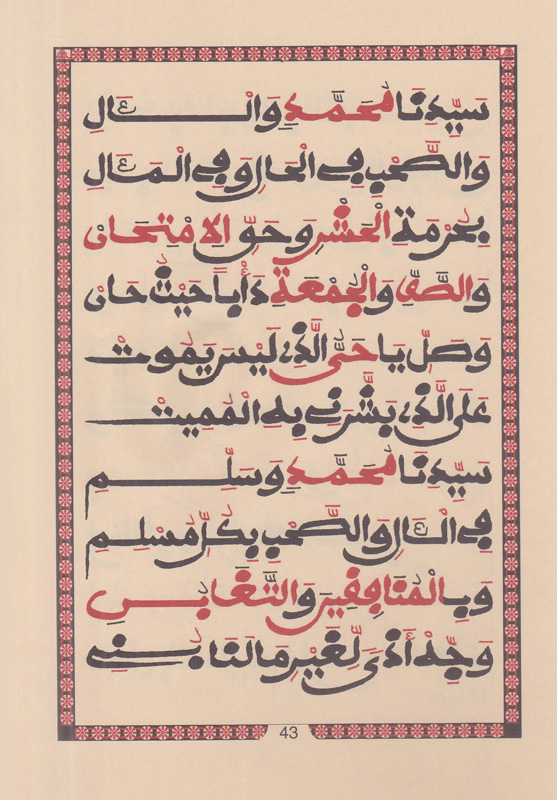 سَيِّدِنَا مُحَمَّدٍ وَالْـَٔالِ
وَالصَّحْبِ فِي الْحَالِ وَفِي الْمَـَٔالِ
بِحُرْمَةِ الْحَشْرِ وَحَقِّ الِامْتِحَانِ
وَالصَّفِّ وَالْجُمْعَةِ دَأْباً حَيْثُ حَانْ
وَصَلِّ يَا حَيُّ الَّذِي لَيْسَ يَمُوتْ
عَلَى الَّذِي بَشَّرَنِي بِهِ الْمُمِيتْ
سَيِّدِنَا مُحَمَّدٍ وَسَلِّمِ
فِي الْـَٔالِ وَالصَّحْبِ بِكُلِّ مُسْلِمِ
وَبِالْمُنَافِقِينَ وَالتَّغَابُنِ
وَجِّهْ أَذىً لِّغَيْرِ مَا لَنَا بُنِي
43